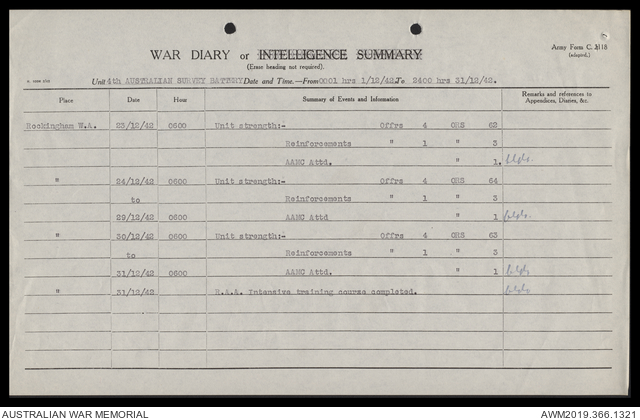 Army Form C. 2118
(adapted.)
WAR DIARY or INTELLIGENCE SUMMARY
(Erase heading not required).
Unit 4th AUSTRALIAN SURVEY BATTERY Date and Time.—From 0001 hrs 1/12/42 To 2400 hrs 31/12/42.
Place Date Hour Summary of Events and Information Remarks and references to Appendices, Diaries, &c.
Rockingham W.A. 23/12/42 0600 Unit strength:- Offrs 4 ORS 62
Reinforcements " 1 " 3
AAMC Attd. " 1.
" 24/12/42 0600 Unit strength:- Offrs 4 ORS 64
to Reinforcements " 1 " 3
29/12/42 0600 AAMC Attd " 1
" 30/12/42 0600 Unit strength:- Offrs 4 ORS 63
to Reinforcements " 1 " 3
31/12/42 0600 AAMC Attd. " 1
" 31/12/42 R.A.A. Intensive training course completed.
AUSTRALIAN WAR MEMORIAL AWM2019.366.1321